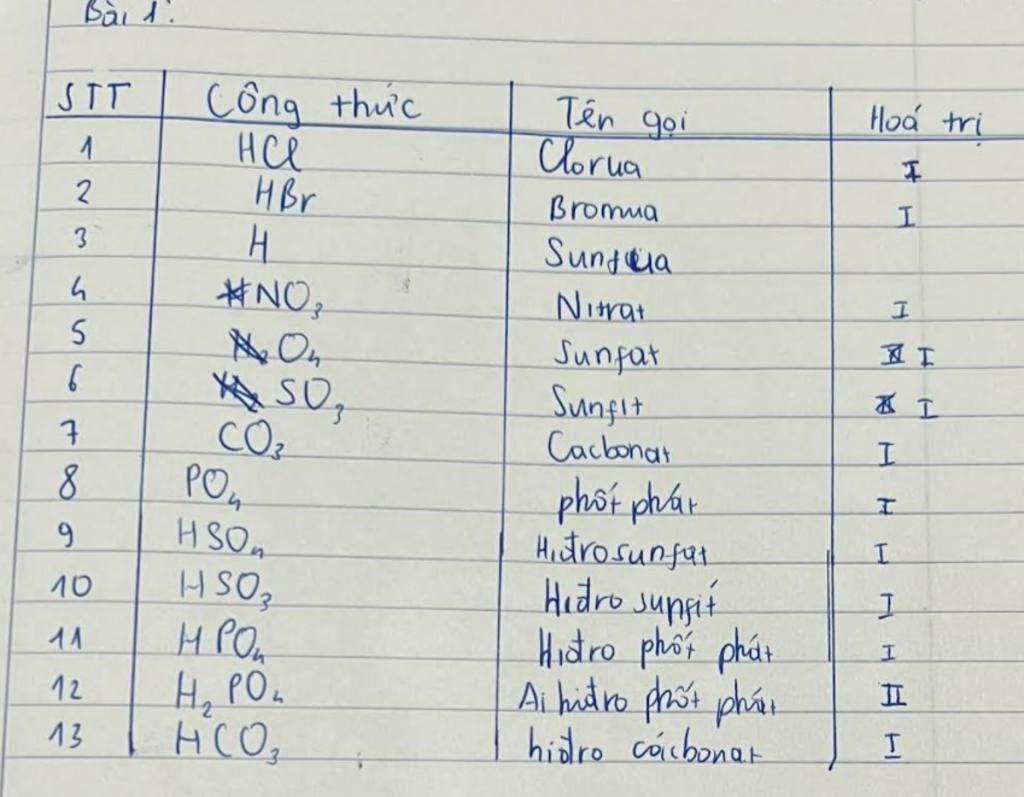 Bài 1:
STT Công thức Tên gọi Hoá trị
1 HCl Clorua I
2 HBr Bromua I
3 H Sunfua
4 NO3 Nitrat I
5 O4 Sunfat I
6 SO3 Sunfit I
7 CO3 Cacbonat I
8 PO4 phốt phát I
9 HSO4 Hiđrosunfat I
10 HSO3 Hiđro sunfit I
11 HPO4 Hiđro phốt phát I
12 H2PO4 Ai hiđro phốt phát II
13 HCO3 hiđro cácbonat I